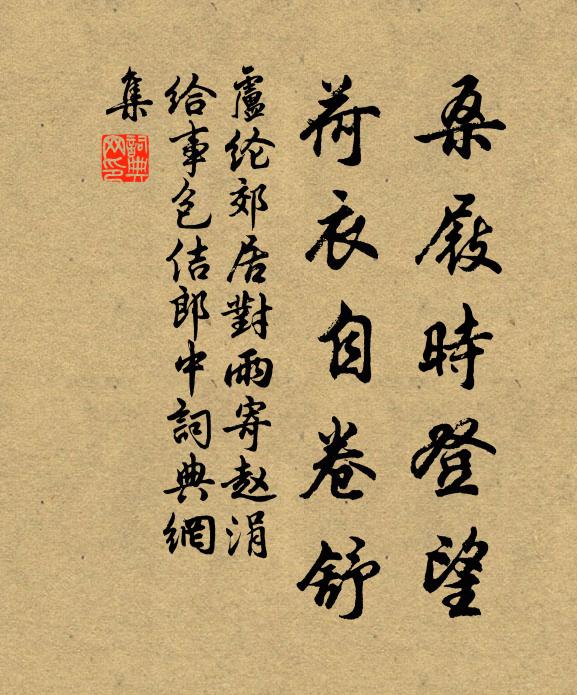 桑屐時登望
荷衣自卷舒
盧纶郊居對雨寄赵涓
给事包佶郎中詞典網
集
詞典
网印